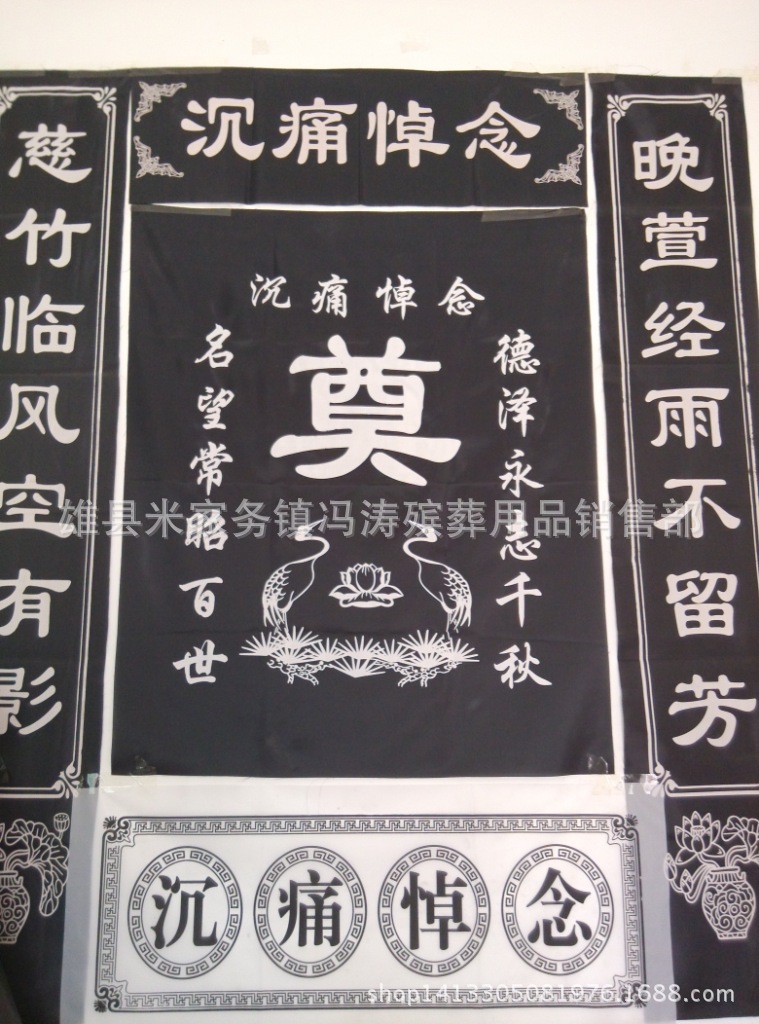 沉痛悼念
慈竹临风空有影
晚萱经雨不留芳
沉痛悼念
奠
德泽永志千秋
名望常昭百世
沉痛悼念
雄县米家务镇冯涛殡葬用品销售部
shop1413305081976.1688.com